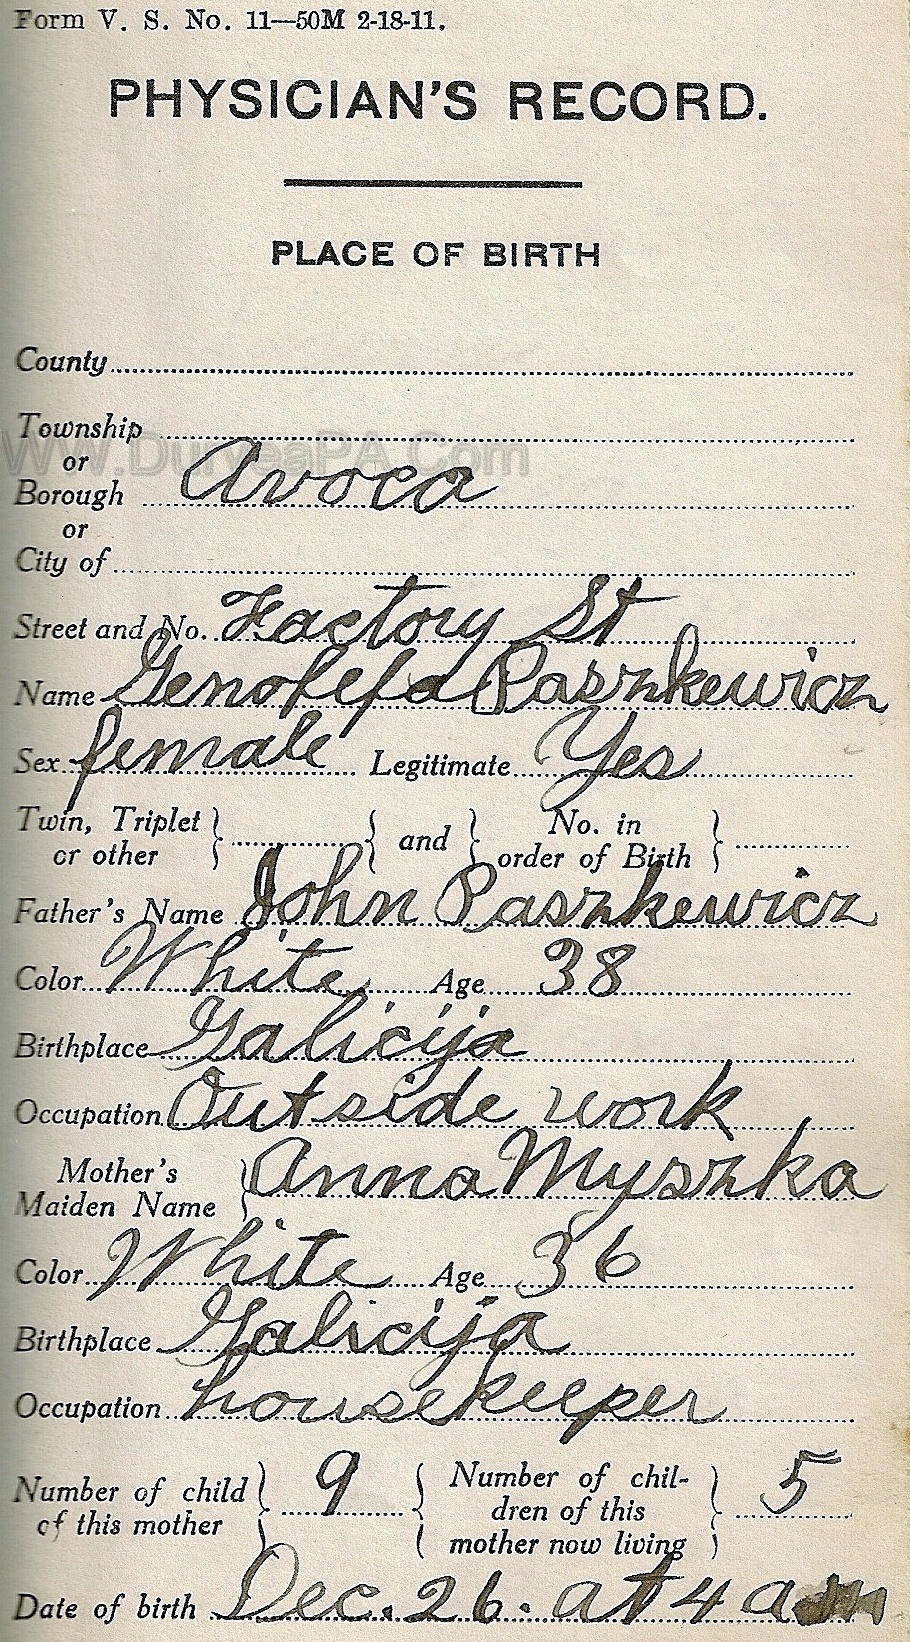 Form V. S. No. 11—50M 2-18-11.
PHYSICIAN'S RECORD.
PLACE OF BIRTH
County
Township
www.DuryeaPA.Com
or
Borough Avoca
or
City of
Street and No. Factory St
Name Genofefa Paszkewicz
Sex female Legitimate Yes
Twin, Triplet or other } { and { No. in order of Birth }
Father's Name John Paszkewicz
Color White Age 38
Birthplace Galicija
Occupation Outside work
Mother's Maiden Name } Anna Myszka
Color White Age 36
Birthplace Galicija
Occupation housekeeper
Number of child of this mother } 9 { Number of chil-dren of this mother now living } 5
Date of birth Dec. 26. at 4 a m